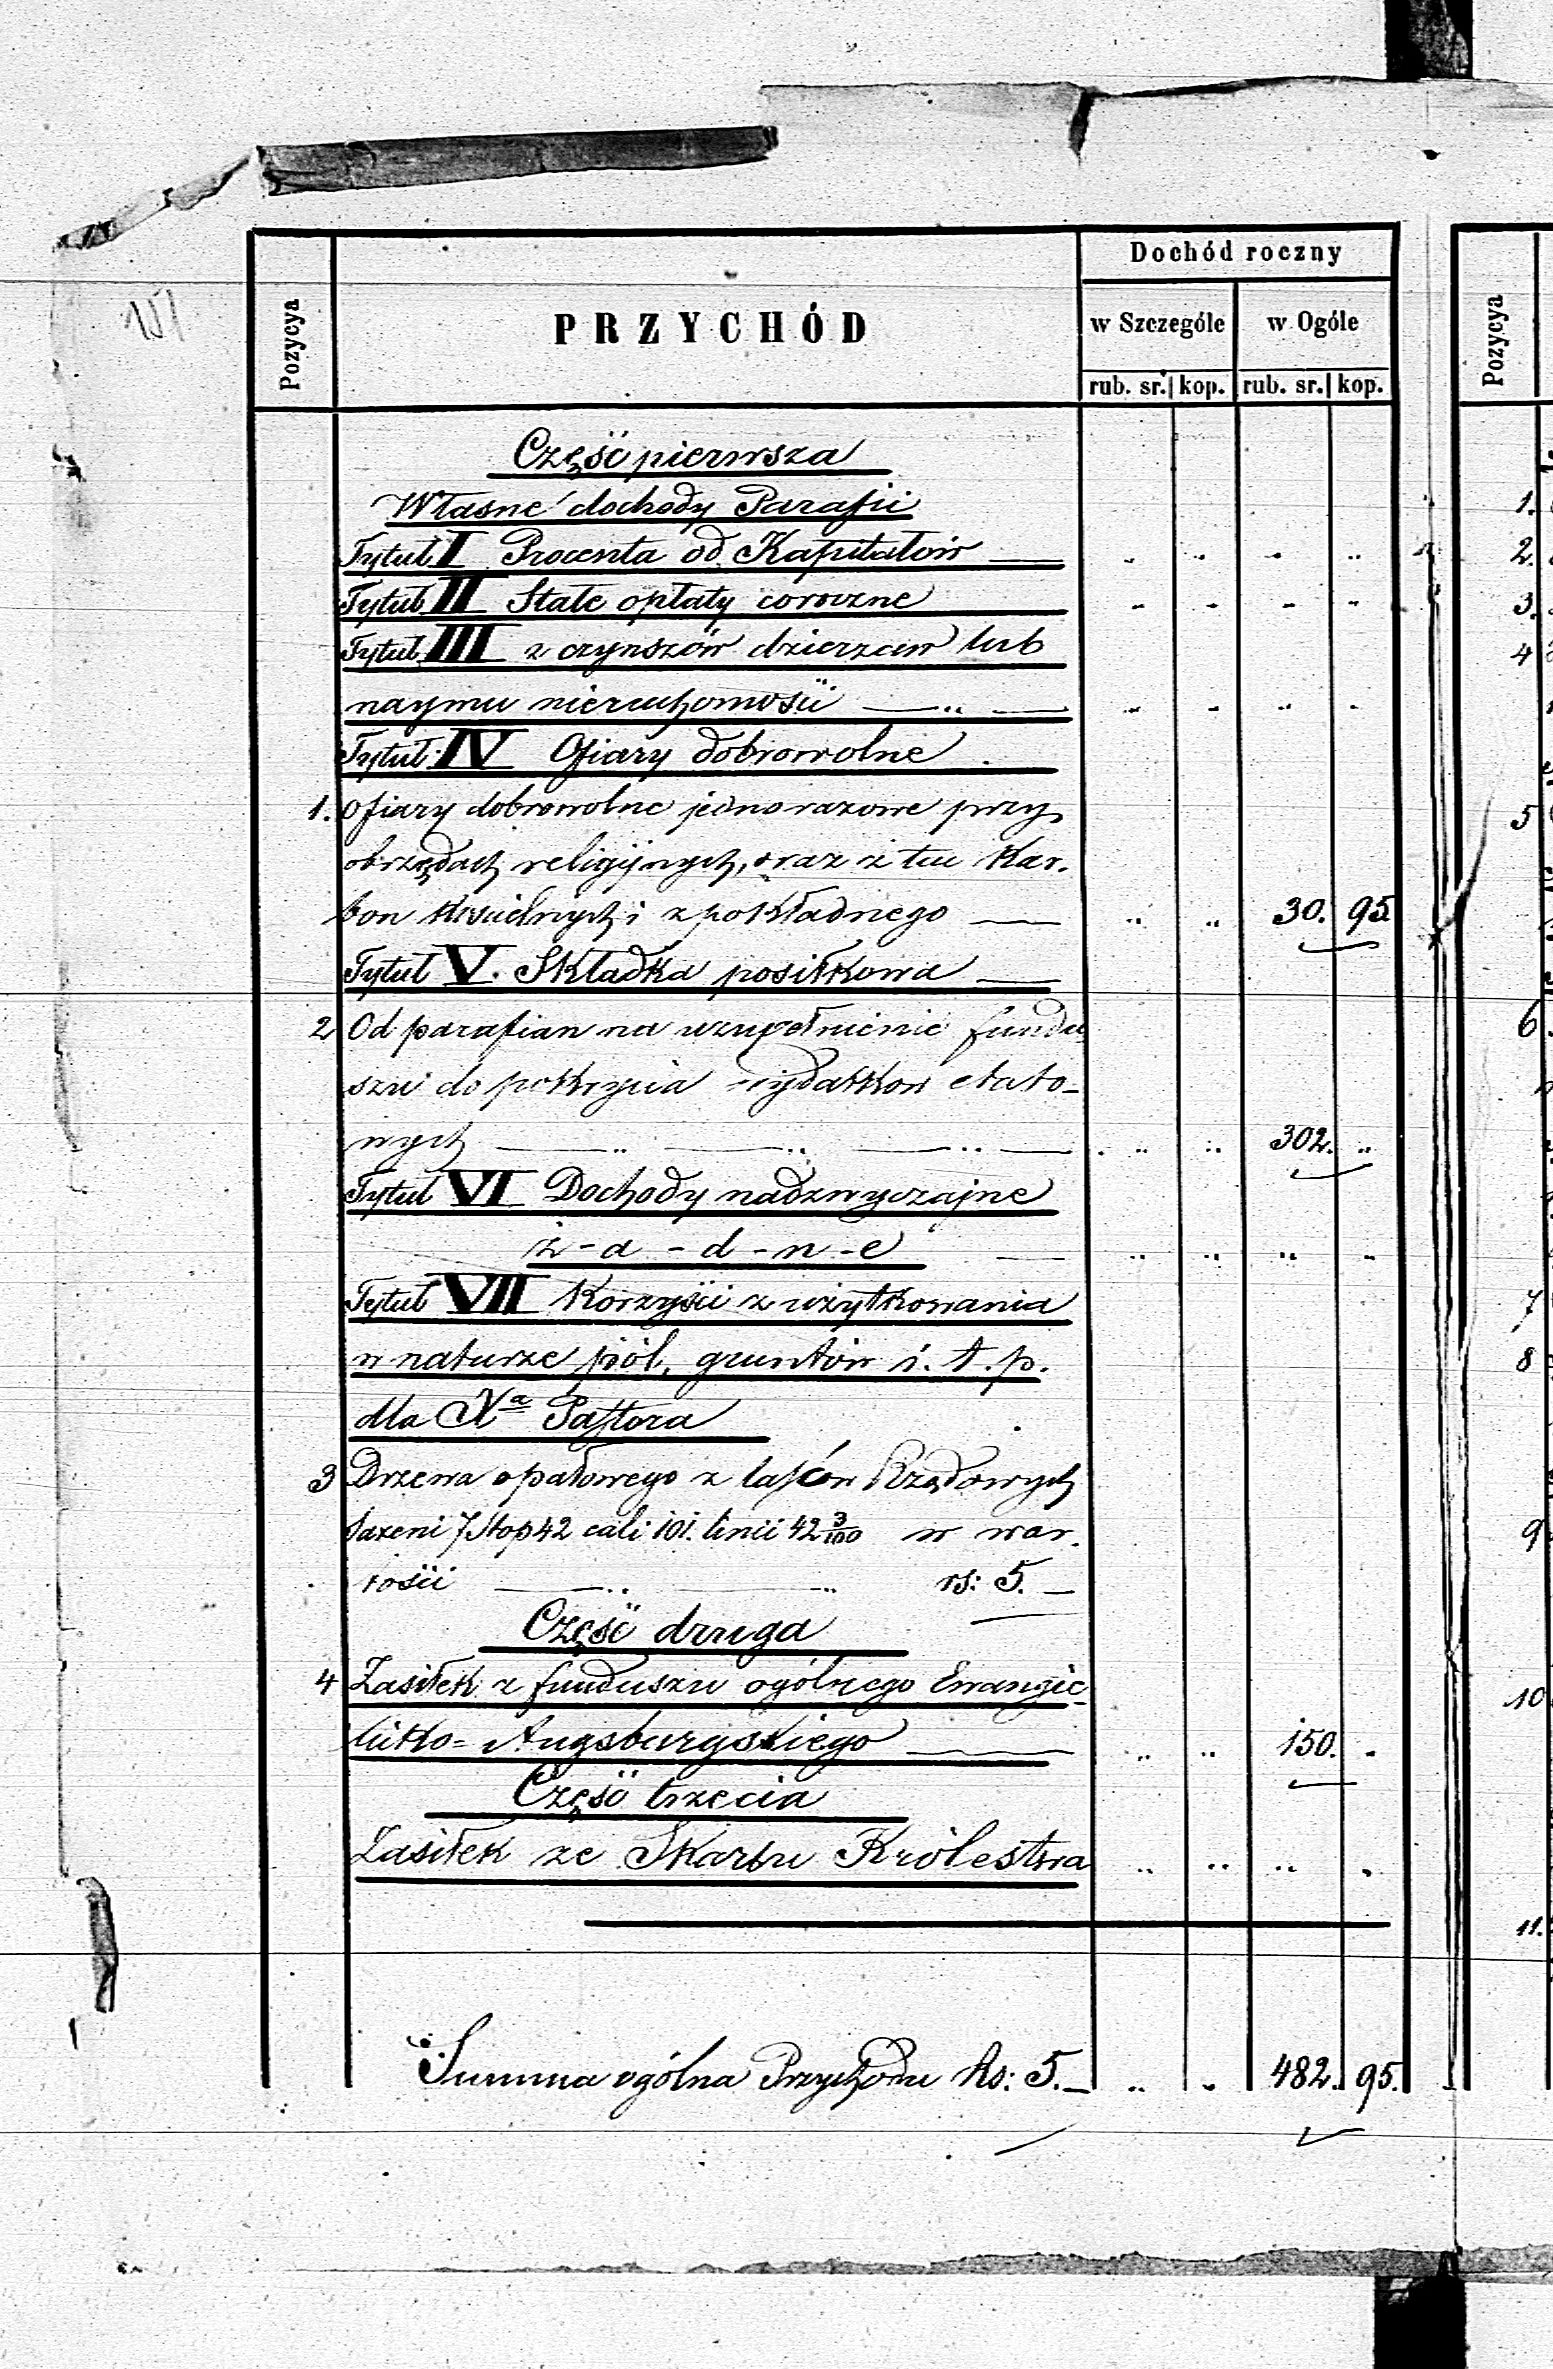 Dochód roczny
Pozycya
PRZYCHÓD
w Szczególe
w Ogóle
Pozycya
rub. sr. kop. rub. sr. kop.
Część pierwsza
Własne dochody Parafii
1.
Tytuł I Procenta od Kapitałów — „ „ „ „
2.
Tytuł II Stałe opłaty coroczne „ „ „ „
3.
Tytuł III z czynszów dzierzaw lub
4
naymu nieruchomości — „ — „ „ „ „
Tytuł IV Ofiary dobrowolne .
1. Ofiary dobrowolne jednorazowe przy
5
obrzędach religijnych, oraz z tu Kar-
bon Kościelnych i z pokładnego — „ „ 30. 95
Tytuł V. Składka posiłkowa —
2 Od parafian na uzupełnienie fundu
6.
szu do pokrycia wydatkow etato-
wych — „ — „ — „ — „ „ 302. „
Tytuł VI Dochody nadzwyczajne
ż - a - d - n - e — „ „ „ „
Tytuł VII Korzyści z użytkowania
7
w naturze pól, gruntów i. t. p.
8
dla Xa Pastora
3 Drzewa opałowego z lasów Rządowych
sązeni 7 stop 42 cali 101. linii 42 3/100 w war-
9
tości — „ — „ rs: 5. —
Część druga
4 Zasiłek z funduszu ogólnego Ewangie-
10
licko= Augsburgskiego — „ „ 150. „
Część trzecia
Zasiłek ze Skarbu Królestwa „ „ „ „
11.
Summa ogólna Przychodu Rs: 5. — „ „ 482. 95.